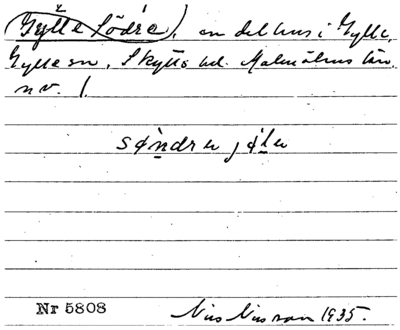 Gylle Södra, en del hus i Gylle,
Gylle sn, Skytts hd. Malmöhus län.
n v. 1.
søndrə jølə
Nr 5808 Nils Nilsson 1935.